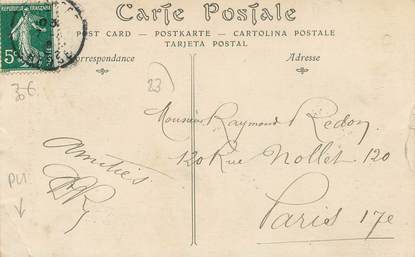 Carte Postale
POST CARD — POSTKARTE — CARTOLINA POSTALE
TARJETA POSTAL
Correspondance
Adresse
REPUBLIQUE FRANÇAISE
5c
23)
Monsieur Raymond Redon
120 Rue Nollet 120
Paris 17e
Amitiés